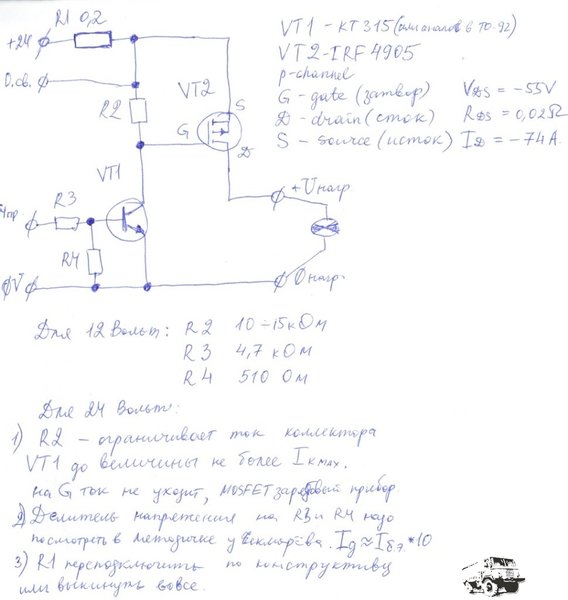 R1 0,2
+24
О.св.
R2
VT2
S
G
D
VT1
R3
Упр.
R4
0V
+Uнагр
0нагр.
VT1 - КТ315 (или аналог в ТО-92)
VT2 - IRF4905
p-channel
G - gate (затвор) VDS = -55V
D - drain (сток) RDS = 0,02Ω
S - source (исток) ID = -74A.
Для 12 Вольт: R2 10-15 кОм
R3 4,7 кОм
R4 510 Ом
Для 24 Вольт:
1) R2 - ограничивает ток коллектора
VT1 до величины не более Iк max.
на G ток не уходит, MOSFET зарядовый прибор
2) Делитель напряжения на R3 и R4 надо
посмотреть в методичке у Бокмарёва. Iд ≈ Iбэ * 10
3) R1 переподключить по конструктиву
или выкинуть вовсе.